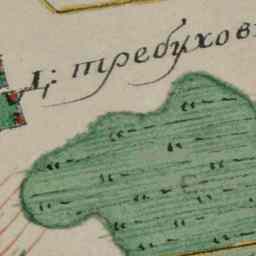 Ц: требухов